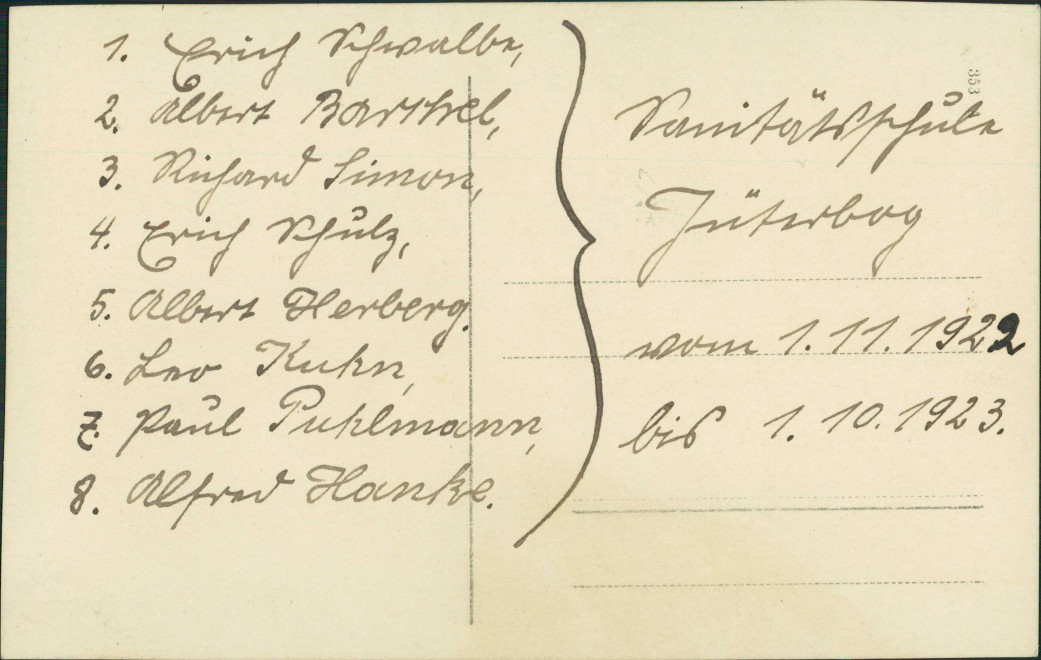 1. Erich Schwalbe,
2. Albert Barthel,
3. Richard Simon,
4. Erich Schulz,
5. Albert Herberg.
6. Leo Kuhn,
7. Paul Puhlmann,
8. Alfred Hanke.
Sanitätsschule
Jüterbog
vom 1.11.1922
bis 1.10.1923.
353